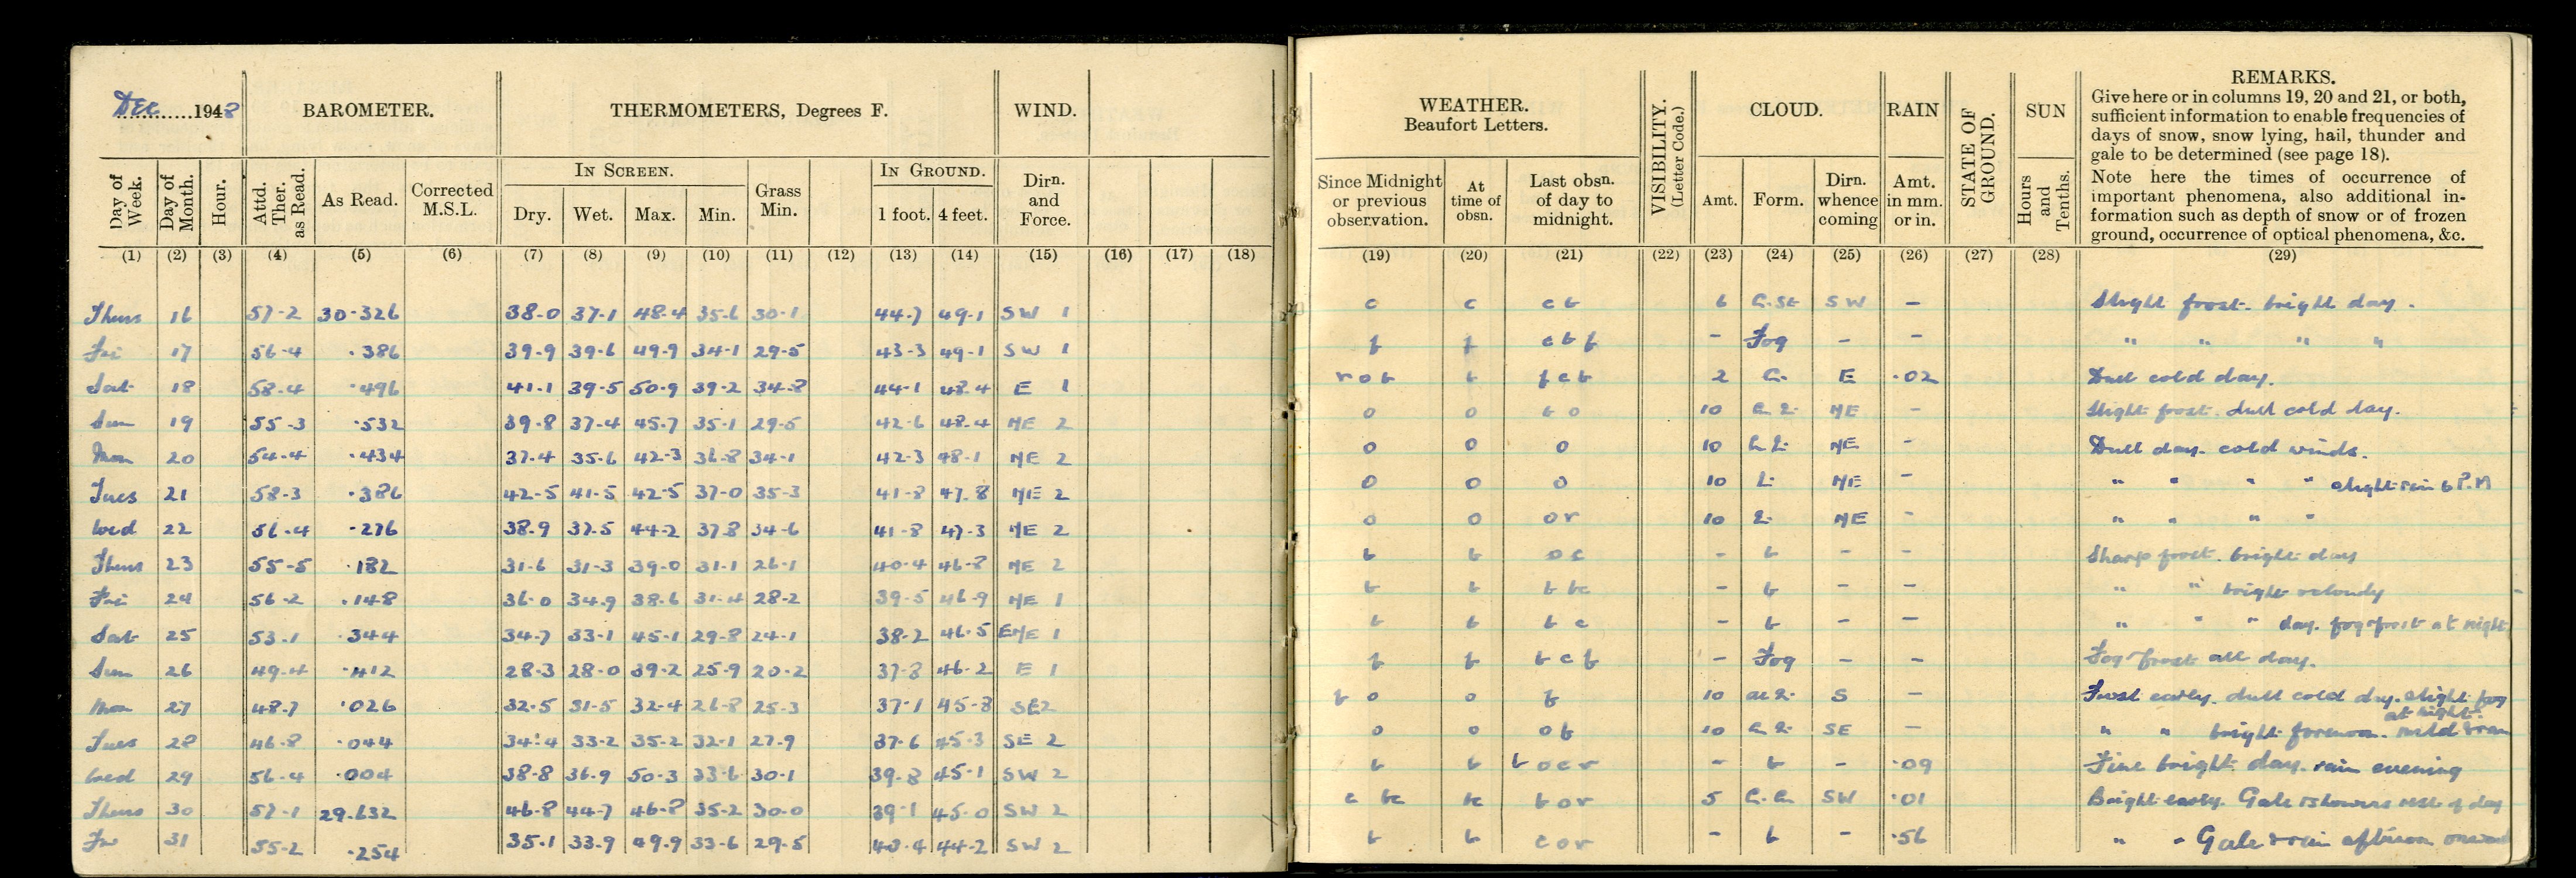 DEC 1948
BAROMETER.
THERMOMETERS, Degrees F.
WIND.
WEATHER.
Beaufort Letters.
VISIBILITY.
(Letter Code.)
CLOUD.
RAIN
STATE OF
GROUND.
SUN
REMARKS.
Give here or in columns 19, 20 and 21, or both,
sufficient information to enable frequencies of
days of snow, snow lying, hail, thunder and
gale to be determined (see page 18).
Note here the times of occurrence of
important phenomena, also additional in-
formation such as depth of snow or of frozen
ground, occurrence of optical phenomena, &c.
Day of Week.
Day of Month.
Hour.
Attd. Ther. as Read.
As Read.
Corrected M.S.L.
IN SCREEN.
Dry. Wet. Max. Min.
Grass Min.
IN GROUND.
1 foot. 4 feet.
Dirn. and Force.
Since Midnight or previous observation.
At time of obsn.
Last obsn. of day to midnight.
Amt. Form.
Dirn. whence coming
Amt. in mm. or in.
Hours and Tenths.
(1) (2) (3) (4) (5) (6) (7) (8) (9) (10) (11) (12) (13) (14) (15) (16) (17) (18) (19) (20) (21) (22) (23) (24) (25) (26) (27) (28) (29)
Thurs 16 57.2 30.326 38.0 37.1 48.4 35.6 30.1 44.7 49.1 SW 1 c c c b 6 C.St SW – Slight frost. bright day.
Fri 17 56.4 .386 39.9 39.6 49.9 34.1 29.5 43.3 49.1 SW 1 f f c b f – Fog – – " " " "
Sat 18 58.4 .496 41.1 39.5 50.9 39.2 34.8 44.1 48.4 E 1 r o b b f c b 2 C. E .02 Dull cold day.
Sun 19 55.3 .532 39.8 37.4 45.7 35.1 29.5 42.6 48.4 NE 2 o o b o 10 NE – Slight frost. dull cold day.
Mon 20 54.4 .434 37.4 35.6 42.3 36.8 34.1 42.3 48.1 NE 2 o o o 10 NE – Dull day. cold winds.
Tues 21 58.3 .386 42.5 41.5 42.5 37.0 35.3 41.8 47.8 NE 2 o o o 10 NE – " " " " slight rain 6 P.M
Wed 22 56.4 .276 38.9 37.5 44.2 37.8 34.6 41.8 47.3 NE 2 o o o r 10 NE – " " " "
Thurs 23 55.5 .182 31.6 31.3 39.0 31.1 26.1 40.4 46.8 NE 2 b b o c – b – – Sharp frost. bright day
Fri 24 56.2 .148 36.0 34.9 38.6 31.4 28.2 39.5 46.9 NE 1 b b b bc – b – – " " bright & cloudy
Sat 25 53.1 .344 34.7 33.1 45.1 29.8 24.1 38.2 46.5 ENE 1 b b b c – b – – " " " day. fog & frost at night
Sun 26 49.4 .412 28.3 28.0 39.2 25.9 20.2 37.8 46.2 E 1 f f b c f – Fog – – Fog & frost all day.
Mon 27 48.7 .026 32.5 31.5 32.4 26.8 25.3 37.1 45.8 SE 2 f o o f 10 S – Frost early. dull cold day. slight fog
at night.
Tues 28 46.8 .044 34.4 33.2 35.2 32.1 27.9 37.6 45.3 SE 2 o o o f 10 SE – " " bright forenoon. mild & rain
Wed 29 56.4 .004 38.8 36.9 50.3 33.6 30.1 39.8 45.1 SW 2 b b b o c r – b – .09 Fine bright day. rain evening
Thurs 30 57.1 29.632 46.8 44.7 46.8 35.2 30.0 39.1 45.0 SW 2 c bc bc b o r 5 SW .01 Bright early. Gale & showers rest of day
Fri 31 55.2 .254 35.1 33.9 49.9 33.6 29.5 40.4 44.2 SW 2 b b c o r – b – .56 " " Gale & rain afternoon onward